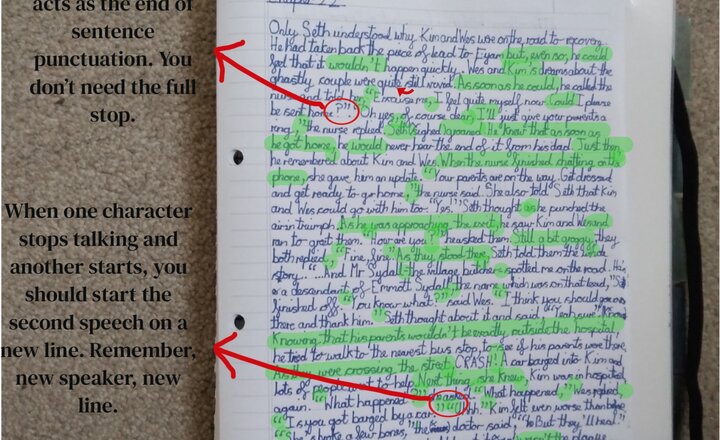 acts as the end of
sentence
punctuation. You
don't need the full
stop.
When one character
stops talking and
another starts, you
should start the
second speech on a
new line. Remember,
new speaker, new
line.
Only Seth understood why Kim and Wes were on the road to recovery.
He had taken back the piece of lead to Eyam but, even so, he could
feel that it wouldn't happen quickly. Wes and Kim's dreams about the
ghastly couple were quite still vivid. As soon as he could, he called the
nurse and told her, "Excuse me, I feel quite myself now. Could I please
be sent home?". "Oh yes, of course dear, I'll just give your parents a
ring," the nurse replied. Seth sighed. groaned. He knew that as soon as
he got home, he would never hear the end of it from his dad. Just then,
he remembered about Kim and Wes. When the nurse finished chatting on the
phone, she gave him an update. "Your parents are on the way. Get dressed
and get ready to go home," the nurse said. She also told Seth that Kim
and Wes could go with him too. "Yes!" Seth thought as he punched the
air in triumph. As he was approaching the exit, he saw Kim and Wes and
ran to greet them. "How are you?" he asked them. Still a bit groggy, they
both replied, "Fine, fine." As they stood there, Seth told them the whole
story. "...And Mr Sydall - the village butcher - spotted me on the road. He
is a descendant of Emmott Sydall, the name which was on that lead," Seth
finished off. "You know what?" said Wes. "I think you should go
there and thank him." Seth thought about it and said, "Yeah sure."
Knowing that his parents wouldn't be exactly outside the hospital,
he tried to walk to the nearest bus stop, to see if his parents were there.
As they were crossing the street, CRASH! A car barged into Kim and
lots of people went to help. Next thing she knew, Kim was in hospital
again. "What happened?" "What happened?" Wes replied,
"Uhh." Kim felt even worse than before.
"Is you got barged by a car," the doctor said,
"She's broke a few bones,